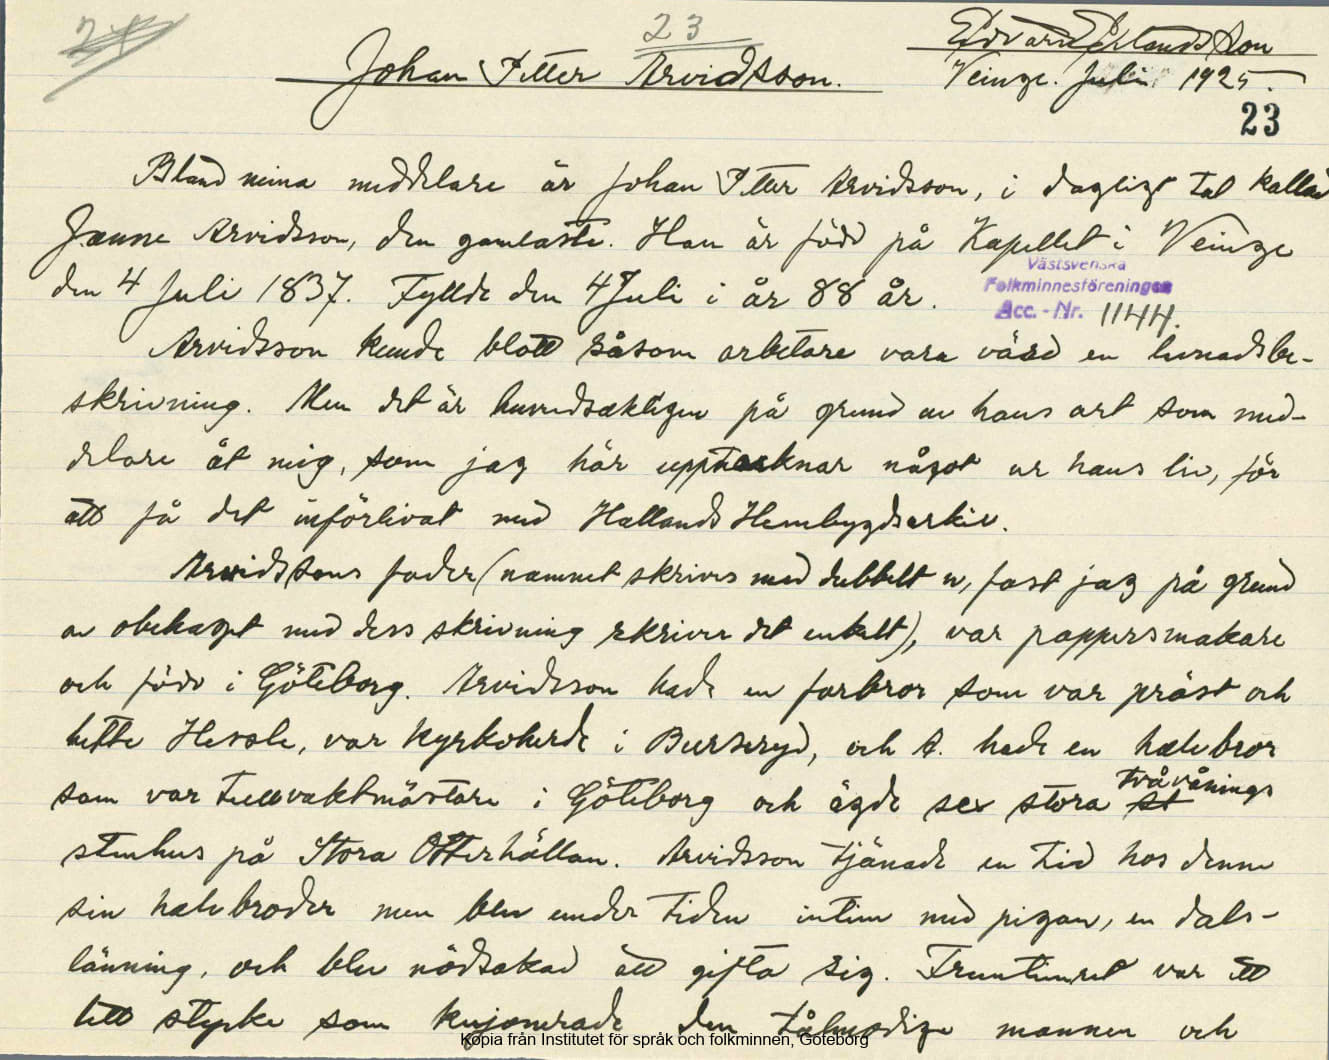 23
Edvard Erlandsson
Johan Petter Arvidsson.
Veinge. Juli 1925.
23
Bland mina meddelare är Johan Petter Arvidsson, i dagligt tal kallad
Janne Arvidsson, den gamlaste. Han är född på Kapellet i Veinge
den 4 Juli 1837. Fyllde den 4 Juli i år 88 år.
Västsvenska
Folkminnesföreningen
Acc.-Nr. 1144.
Arvidsson kunde blott såsom arbetare vara värd en levnadsbe-
skrivning. Men det är huvudsakligen på grund av hans art som med-
delare åt mig, som jag här upptecknar något ur hans liv, för
att få det införlivat med Hallands Hembygdsarkiv.
Arvidssons fader (namnet skrives med dubbelt w, fast jag på grund
av obekant med dess skrivning skriver det enkelt), var pappersmakare
och född i Göteborg. Arvidsson hade en farbror som var präst och
hette , var kyrkoherde i Burseryd, och A. hade en halvbror
som var tullvaktmästare i Göteborg och ägde sex stora tvåvånings
stenhus på Stora Otterhällan. Arvidsson tjänade en tid hos denne
sin halvbroder men blev under tiden intim med pigan, en dals-
länning, och blev nödsakad att gifta sig. Fruntimret var ett
lett stycke som kujonerade den tålmodige mannen och
Kopia från Institutet för språk och folkminnen, Göteborg